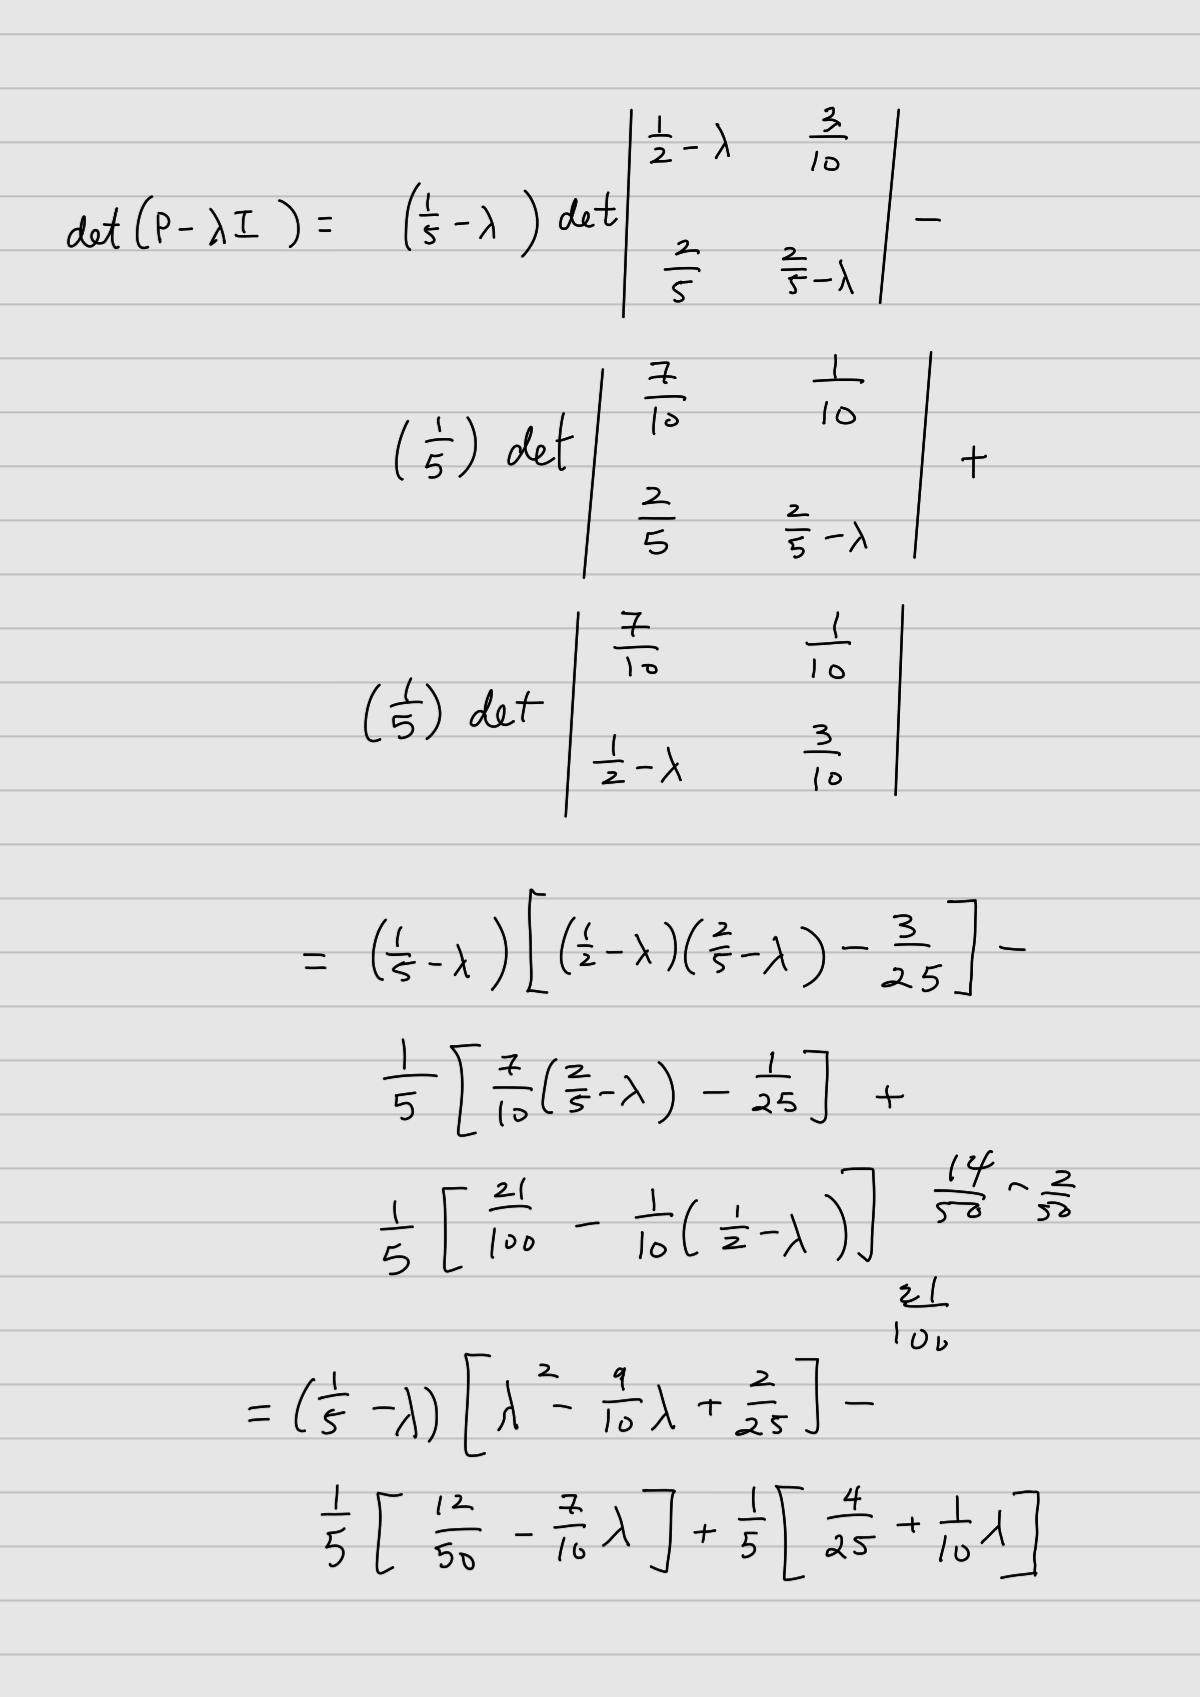 det(P - λI) = (1/5 - λ) det | 1/2 - λ  3/10 ; 2/5  2/5 - λ | -
(1/5) det | 7/10  1/10 ; 2/5  2/5 - λ | +
(1/5) det | 7/10  1/10 ; 1/2 - λ  3/10 |
= (1/5 - λ) [ (1/2 - λ)(2/5 - λ) - 3/25 ] -
1/5 [ 7/10 (2/5 - λ) - 1/25 ] +
1/5 [ 21/100 - 1/10 ( 1/2 - λ ) ]
14/50 - 2/50
21/100
= (1/5 - λ) [ λ² - 9/10 λ + 2/25 ] -
1/5 [ 12/50 - 7/10 λ ] + 1/5 [ 4/25 + 1/10 λ ]